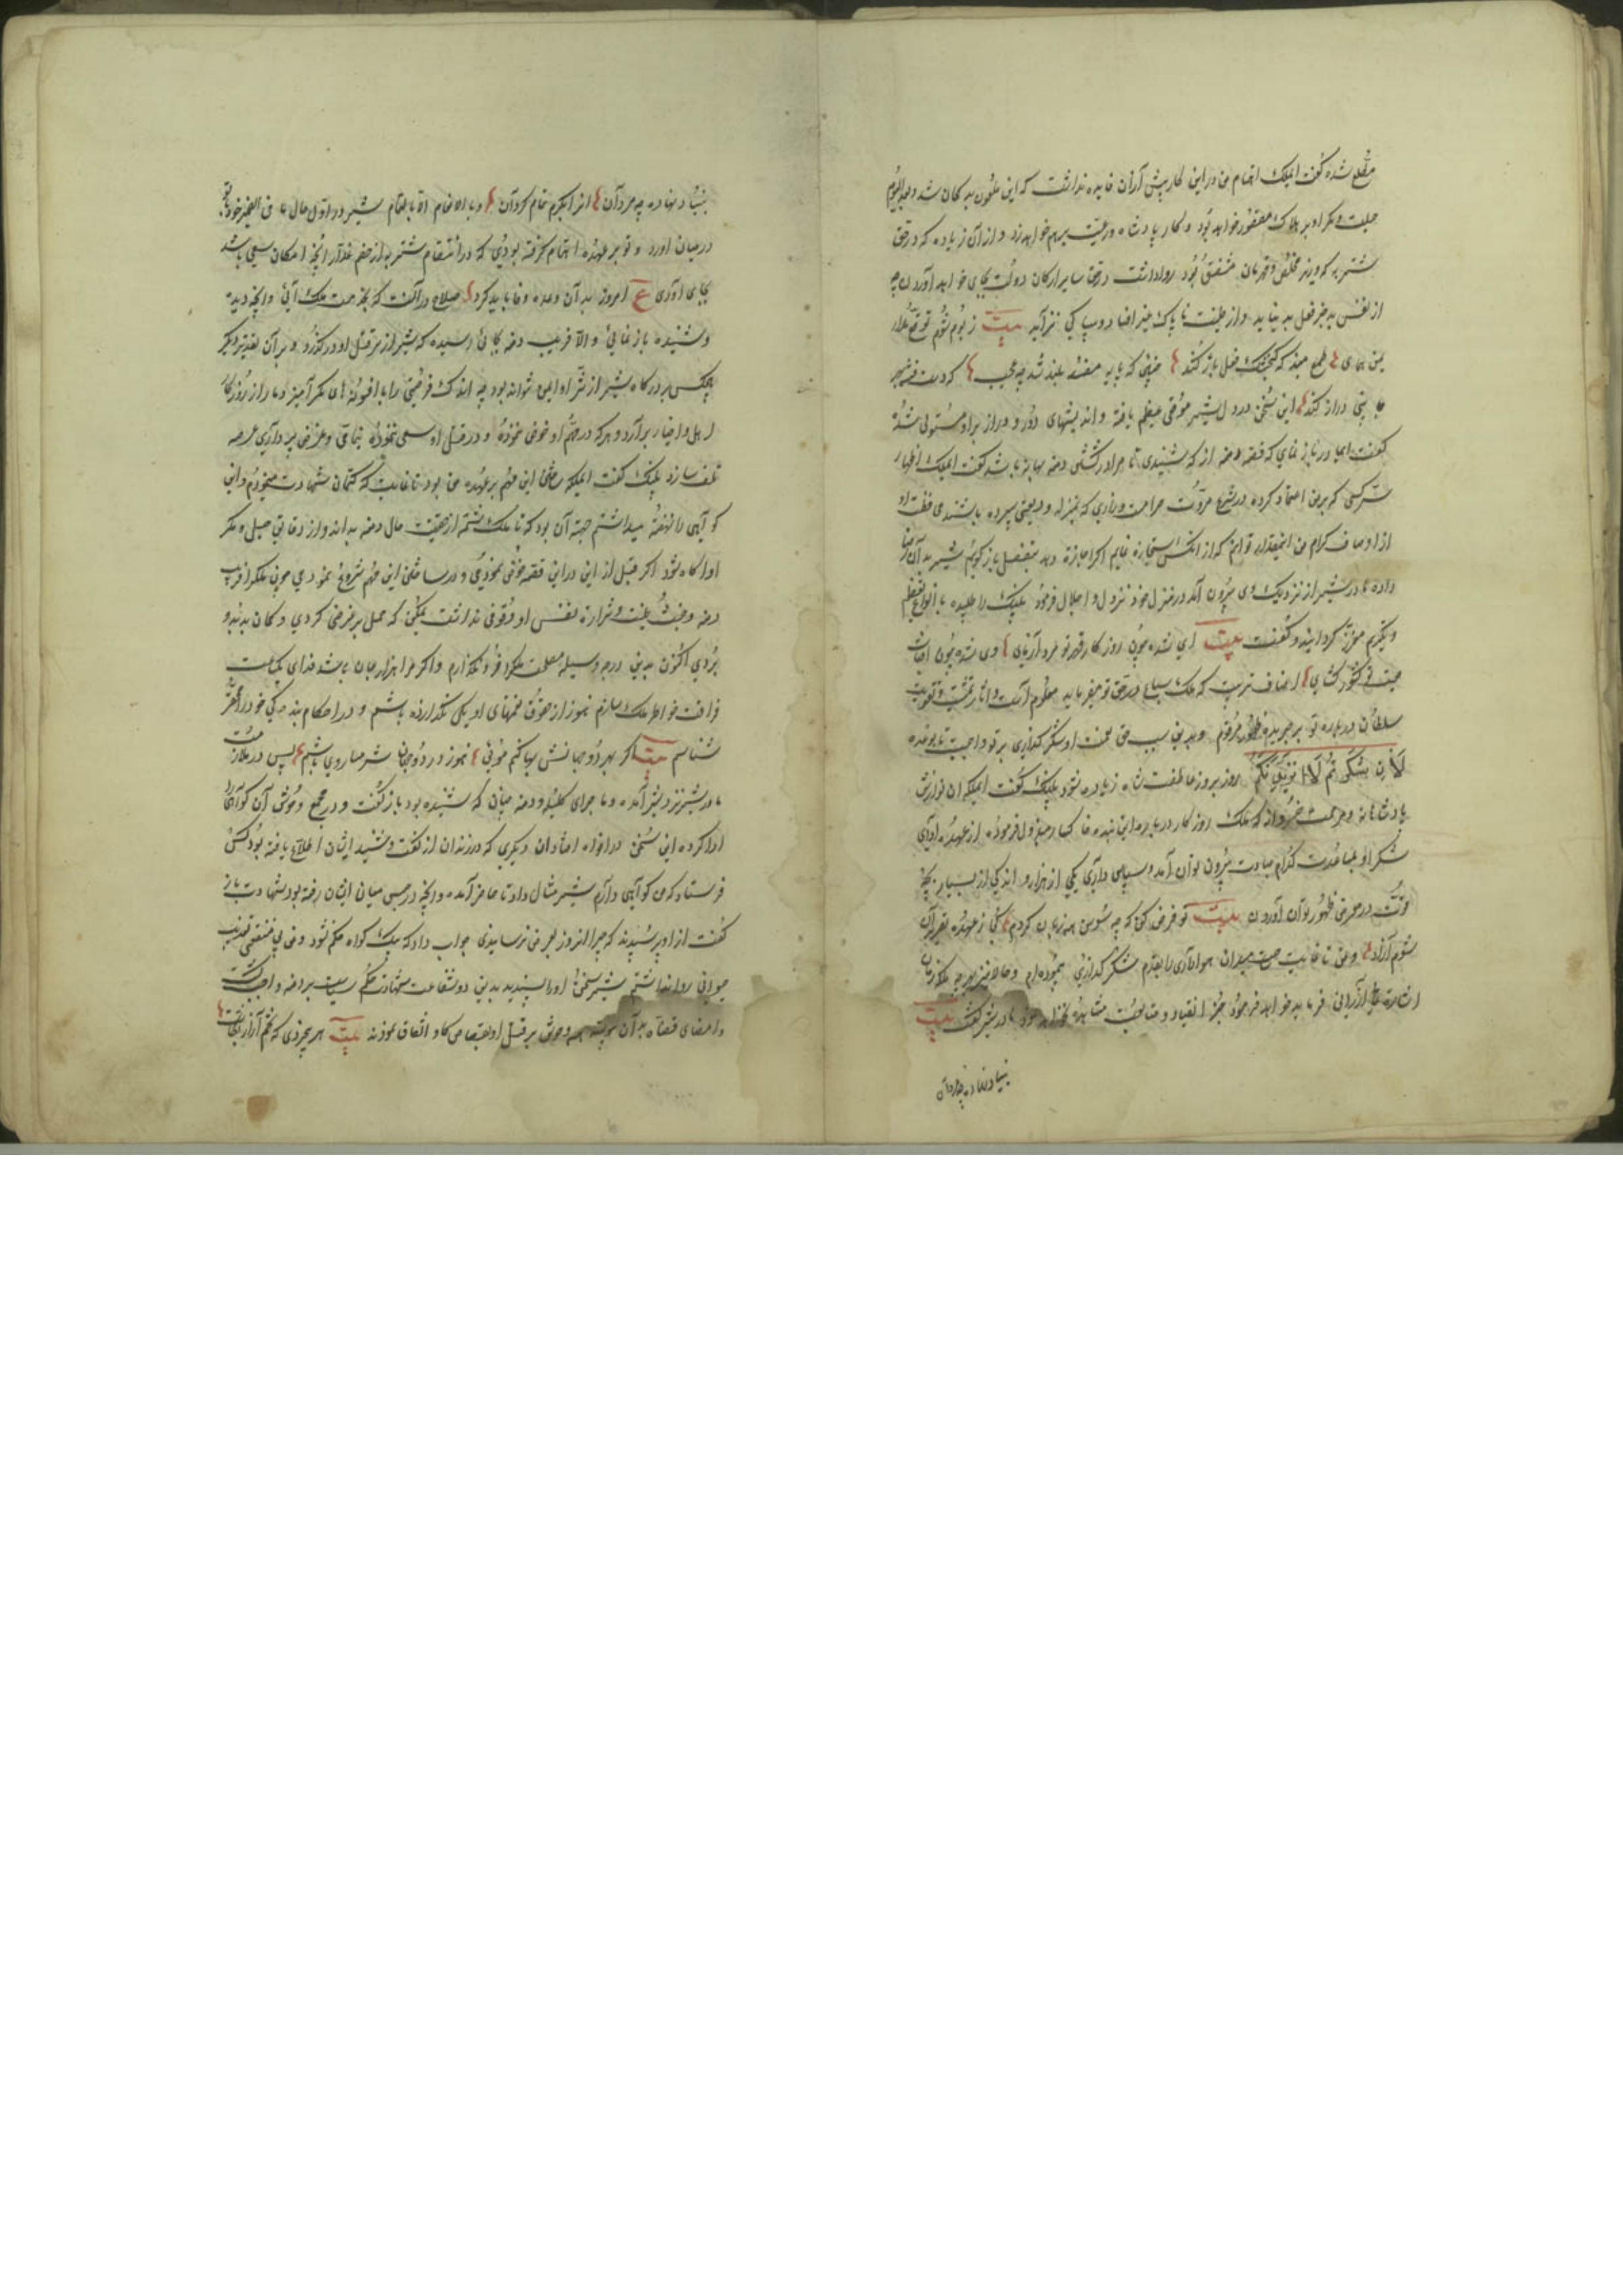 مطلع شده گفت ایملک اهتمام من در این کار پیش از آن فایده نداشت که این ملعون بد کمان شد و بعد الیوم
حیلت و مکر او بر هلاک مقصور خواهد بود و کار پادشاه و رعیت برهم خواهد زد و از آن زیاده که در حق
شتربه که وزیر مخلص و قهرمان مشفق بود روا داشت در حق سایر ارکان دولت بجای خواهد آورد
از نفس بد جز فعل بد نیاید و از طینت ناپاک جز افساد نزاید بیت ز بوم شوم توقع مدار
یمن همای طمع مبند که کنجشک فعل باز کند
دراز کند این سخن در دل شیر موقعی عظیم یافته و اندیشهای دور و دراز بر او مستولی شد
گفت ای مادر باز نمای که قصه دمنه از که شنیدی تا مرا در کشتن دمنه بهانه باشد گفت ایملک اظهار
سر کسی که بر من اعتماد کرده در شرع مروت حرامست و رازی که بمنزله ودیعتی سپرده باشند محافظت او
از اوصاف کرام من اینمقدار توانم که از آنکس استجازه نمایم اگر اجازه دهد بتفصیل باز گویم شیر بدان رضا
داده مادر شیر از نزدیک وی بیرون آمد در منزل خود نزول و اجلال فرمود پلنک را طلبیده بانواع تعظیم
و تکریم معزز گردانیده گفت بیت ای شده چون روز کار قدر تو مرد آزمای وی شده چون آفتاب
صیت تو کشور کشای اصناف تربیت که ملک سباع در حق تو میفرماید معلوم است و آثار تمشیت و تقویت
سلطان درباره تو بر جریده ظهور مرقوم و بدین سبب حق نعمت او شکر گذاری بر تو واجبست تا بوعده
لأن شکرتم لأزیدنکم روز بروز عاطفت شاه زیاده شود پلنک گفت ایملکه آن نوازش
پادشاهانه و مرحمت خسروانه که ملک روز کار در باره این بنده خاکسار مبذول فرموده از عهده ادای
شکر او بمساعدت کدام عبارت بیرون توان آمد و سپاس داری یکی از هزار و اندکی از بسیار بچه
قوت در معرض ظهور توان آورد بیت تو فرض کن که چو سوسن همه زبان کردم کی ز عهده تقریر آن
شوم آزاد و من تا غایت در میدان هواداری را بقدم شکر گذاری پیموده ام و حالا نیز بهر چه ملکه زمان
اشارت ارزانی فرماید خواهد فرمود بجز انقیاد و متابعت مشاهده نخواهد نمود مادر شیر گفت بیت
بنیاد نهاده چو مردان
بنیاد نهاده چو مردان از کرم تمام کردان و ما الانعام الا بالتمام شیر در اول حال ما فی الضمیر خود با تو
در میان آورد و تو بر عهده اهتمام گرفته بودی که در انتقام شتربه از خصم غدار آنچه امکان سعی باشد
بجای آوری ع امروز بدان وعده وفا باید کرد صلاح در آنست که بخدمت ملک آئی و آنچه دیده
و شنیده باز نمائی و الا فریب دمنه بجائی رسیده که شیر از سر قتل او درگذرد و بر آن تقدیر دیگر
هیچکس بر درگاه شیر از شر او ایمن نتواند بود چه اندک فرصتی را با افسونهای مکر آمیز دمار از روزگار
اهل و اخیار برآرد و هر که در مهم او خوض نموده و در قتل او سعی نموده بتمامی و عرض
تلف سازد پلنک گفت ایملکه ساختن این مهم بر عهده من بود تا غایت که کتمان شهادت مینمودم و این
گواهی را نهفته میداشتم جهت آن بود که تا ملک شمه از حقیقت حال دمنه بداند و از دقایق حیل و مکر
او آگاه شود اگر قبل از این در این قضیه خوضی نمودمی و در ساختن این مهم شروع نمودمی چون ملک از فریب
دمنه و خبث طینت و شرارت نفس او وقوفی نداشت یمکن که حمل بر غرض کردی و کمان بد بدو
بردی اکنون بدین درجه وسیله مصلحت ملک فرو نگذارم و اگر مرا هزار جان باشد فدای یکساعت
فراغت خواطر ملک سازم هنوز از حقوق نعمتهای او یکی نگذارده باشم و در احکام بندگی خود را مقصر
شناسم بیت اگر بهر دو جهانش بها کنم موئی هنوز در دو جهان شرمساروی باشم پس در ملازمت
مادر شیر نزد شیر آمده و ماجرای کلیله و دمنه چنان که شنیده بود باز گفت و در مجمع وحوش آن گواهی
ادا کرده این سخن در افواه افتاد آن دیگری که در زندان از گفت و شنید ایشان اطلاع یافته بود کس
فرستاد که من گواهی دارم شیر مثال داد تا حاضر آمده و آنچه در حبس میان ایشان رفته بود شهادت باز
گفت از او پرسیدند که چرا آنروز بعرض نرسانیدی جواب داد که بیک گواه حکم نشود و من بی منفعتی تعذیب
حیوانی روا نداشتم شیر سخن او را پسندید بدین دو شهادت حکم سیاست بر دمنه واجب گشت
و امضای قضاة بدان پیوسته همه وحوش بر قتل او بقصاص گاو اتفاق نمودند بیت هر بیخردی که تخم آزار بکاشت